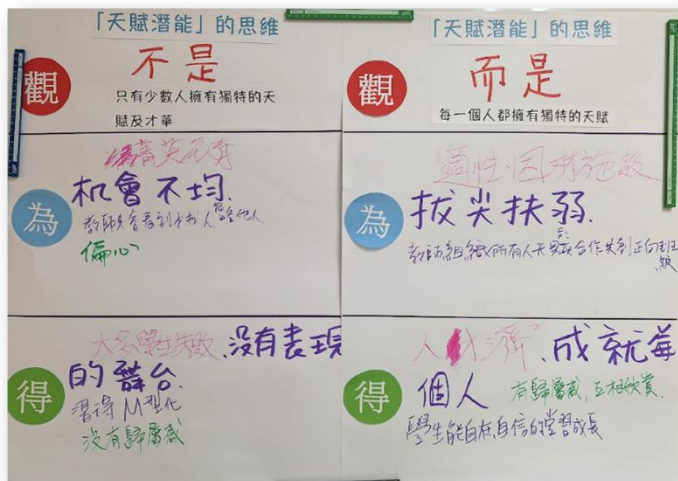 「天賦潛能」的思維
不是
觀
只有少數人擁有獨特的天
賦及才華
為
菁英
机會不均.
教師只會看到
偏心
得
大多學生失敗、没有表現
的舞台.
習得M型化
没有歸屬感
「天賦潛能」的思維
而是
觀
每一個人都擁有獨特的天賦
為
適性、因材施教
拔尖扶弱.
教師組織所有人天賦合作共創正向班
級
得
人才濟、成就每
個人
有歸屬感,互相欣賞.
學生能自在自信的學習成長